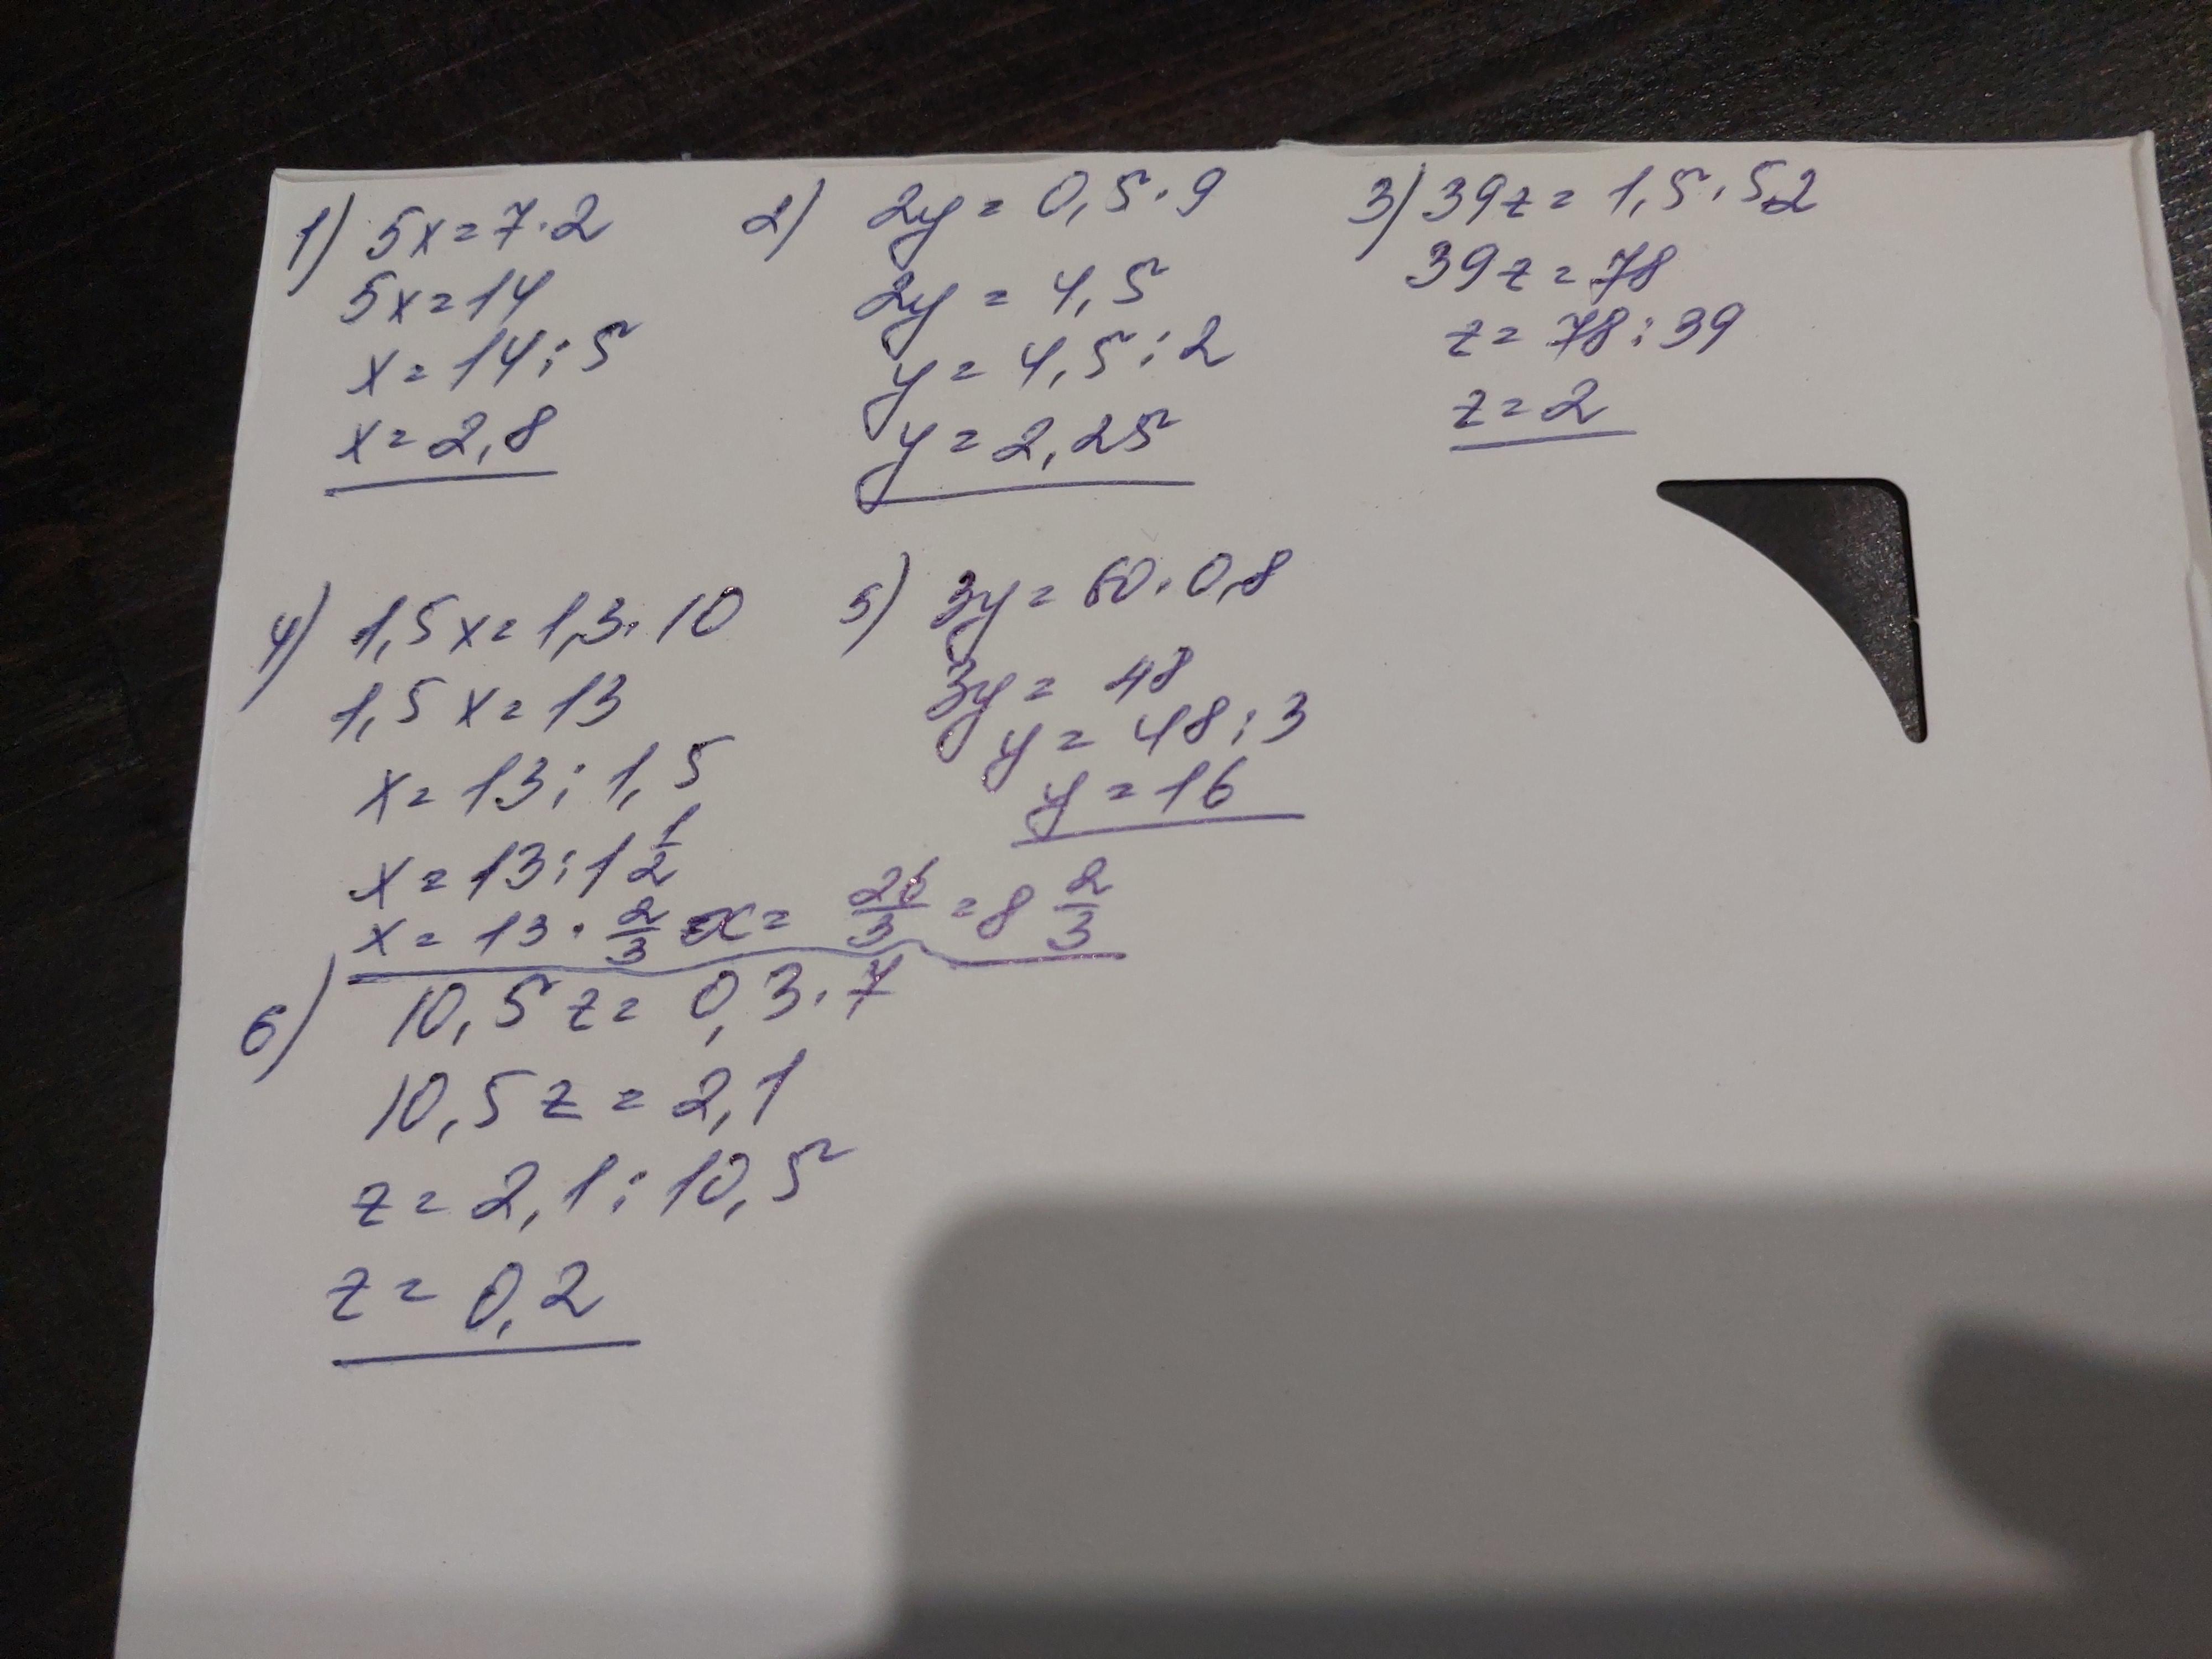 1) 5x=7·2
5x=14
x=14:5
x=2,8
2) 2y=0,5·9
2y=4,5
y=4,5:2
y=2,25
3) 39z=1,5·52
39z=78
z=78:39
z=2
4) 1,5x=1,3·10
1,5x=13
x=13:1,5
x=13:1 1/2
x=13·2/3 x=26/3=8 2/3
5) 3y=60·0,8
3y=48
y=48:3
y=16
6) 10,5z=0,3·7
10,5z=2,1
z=2,1:10,5
z=0,2